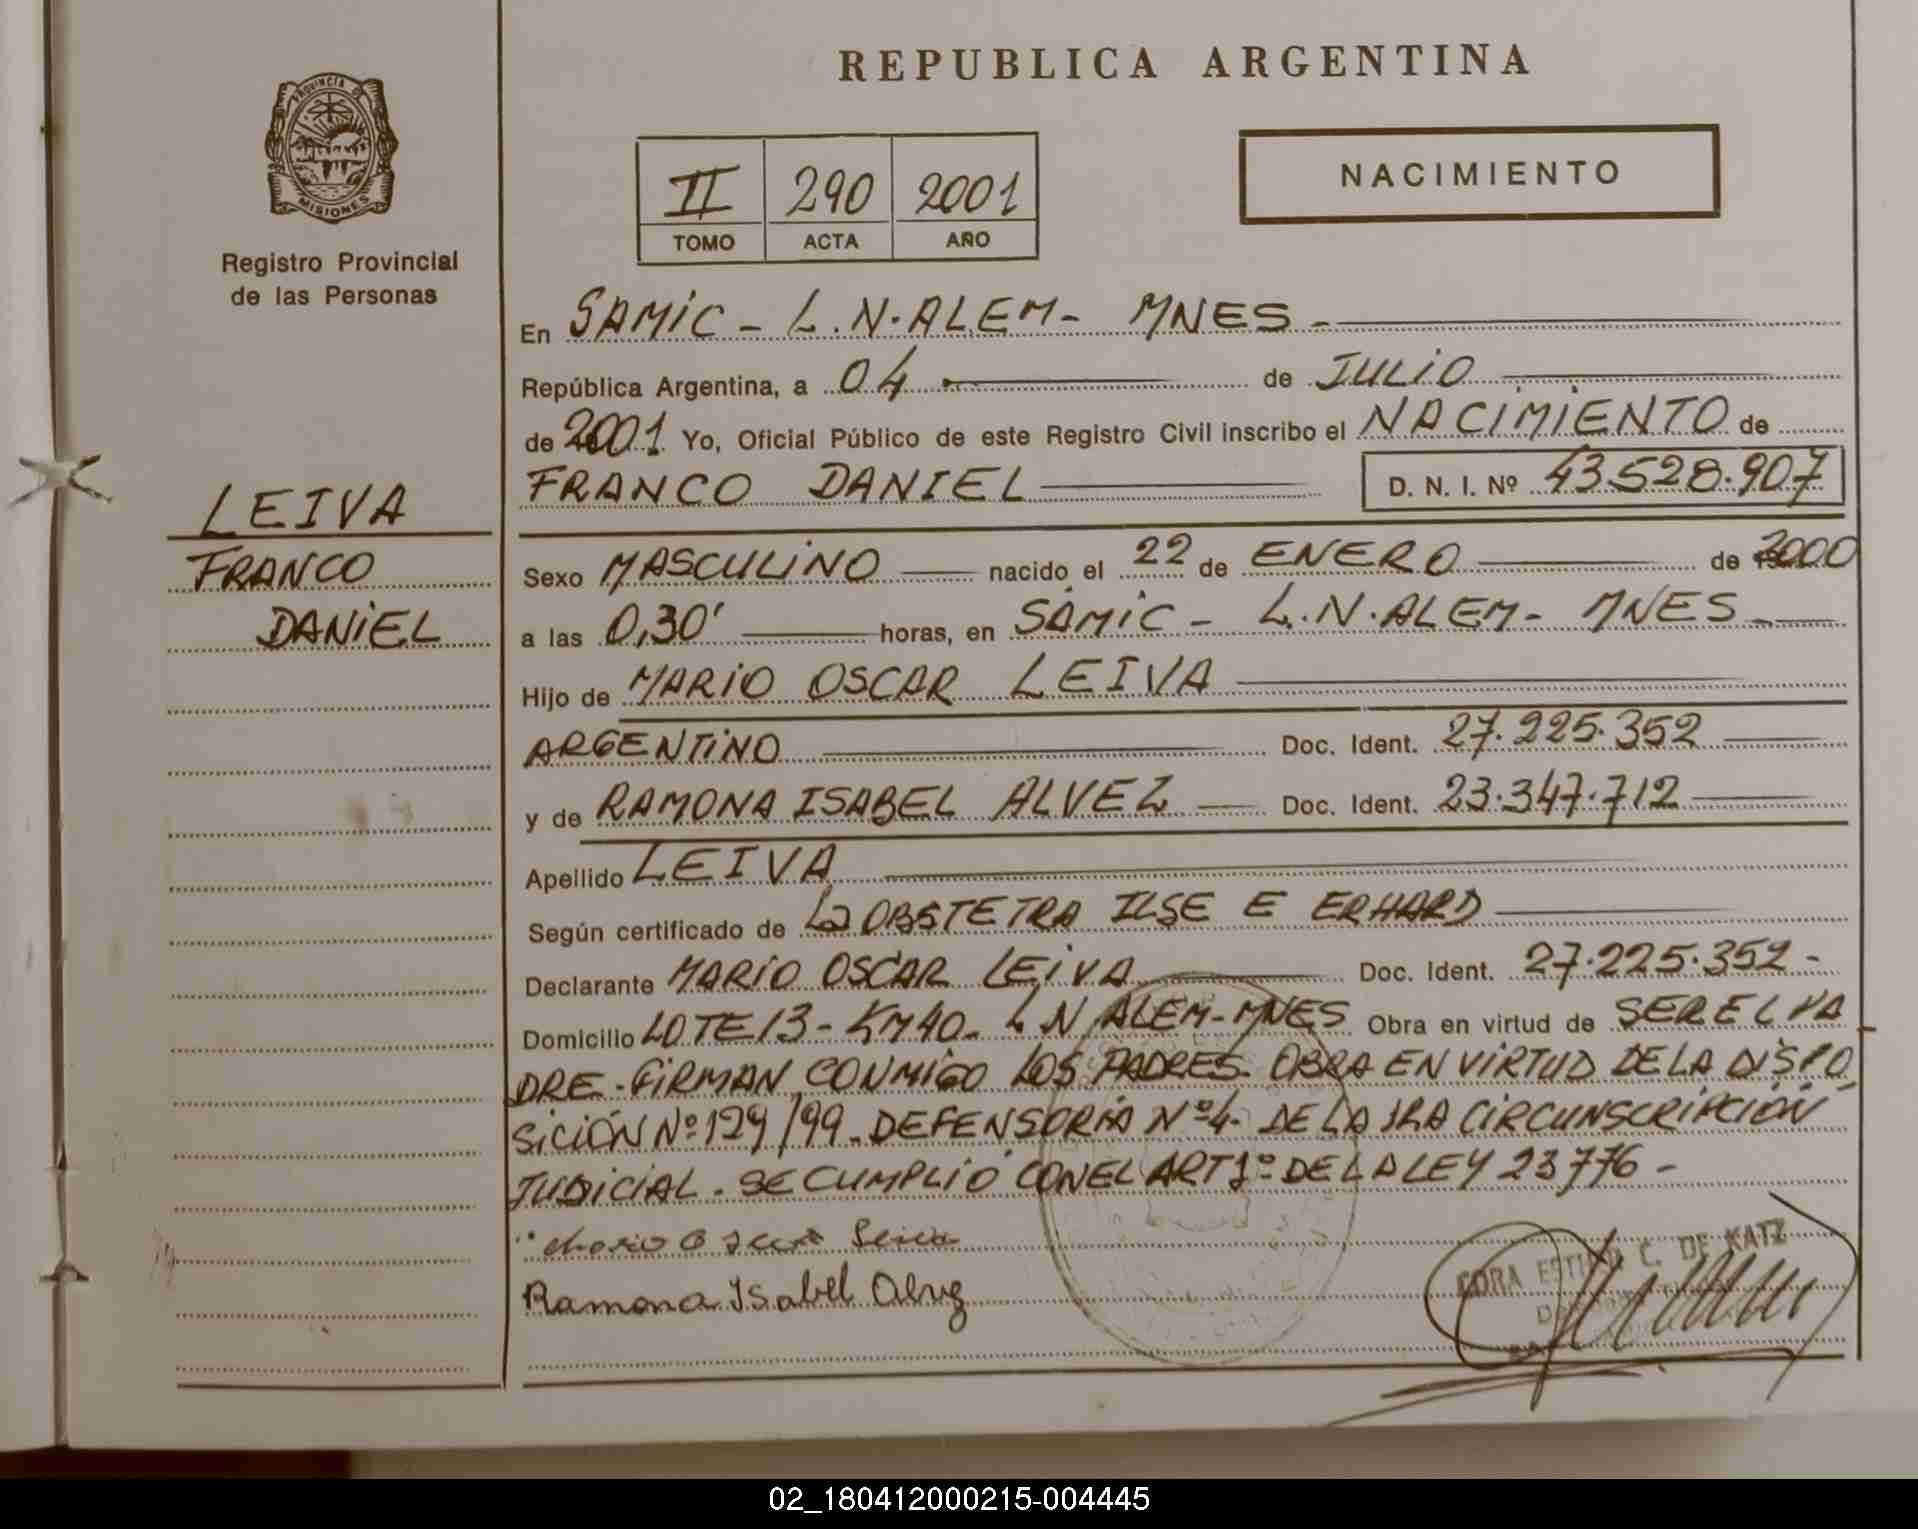 REPUBLICA ARGENTINA
PROVINCIA DE
MISIONES
Registro Provincial
de las Personas
II 290 2001
TOMO ACTA AÑO
NACIMIENTO
LEIVA
FRANCO
DANIEL
En SAMIC - L.N.ALEM - MNES -
República Argentina, a 04 de JULIO
de 2001 Yo, Oficial Público de este Registro Civil inscribo el NACIMIENTO de
FRANCO DANIEL D. N. I. Nº 43.528.907
Sexo MASCULINO nacido el 22 de ENERO de 2000
a las 0,30' horas, en SAMIC - L.N.ALEM - MNES -
Hijo de MARIO OSCAR LEIVA
ARGENTINO Doc. Ident. 27.225.352
y de RAMONA ISABEL ALVEZ Doc. Ident. 23.347.712
Apellido LEIVA
Según certificado de La OBSTETRA ILSE E ERHARD
Declarante MARIO OSCAR LEIVA Doc. Ident. 27.225.352 -
Domicilio LOTE 13 - KM 40 - L N ALEM - MNES Obra en virtud de SER EL PA
DRE - FIRMAN CONMIGO LOS PADRES. OBRA EN VIRTUD DE LA DISPO
SICIÓN Nº 129/99 - DEFENSORIA Nº 4 - DE LA 1RA CIRCUNSCRIPCIÓN
JUDICIAL. SE CUMPLIO CON EL ART 1º DE LA LEY 23776 -
Ramona Isabel Alvez
C. DE KATZ
02_180412000215-004445